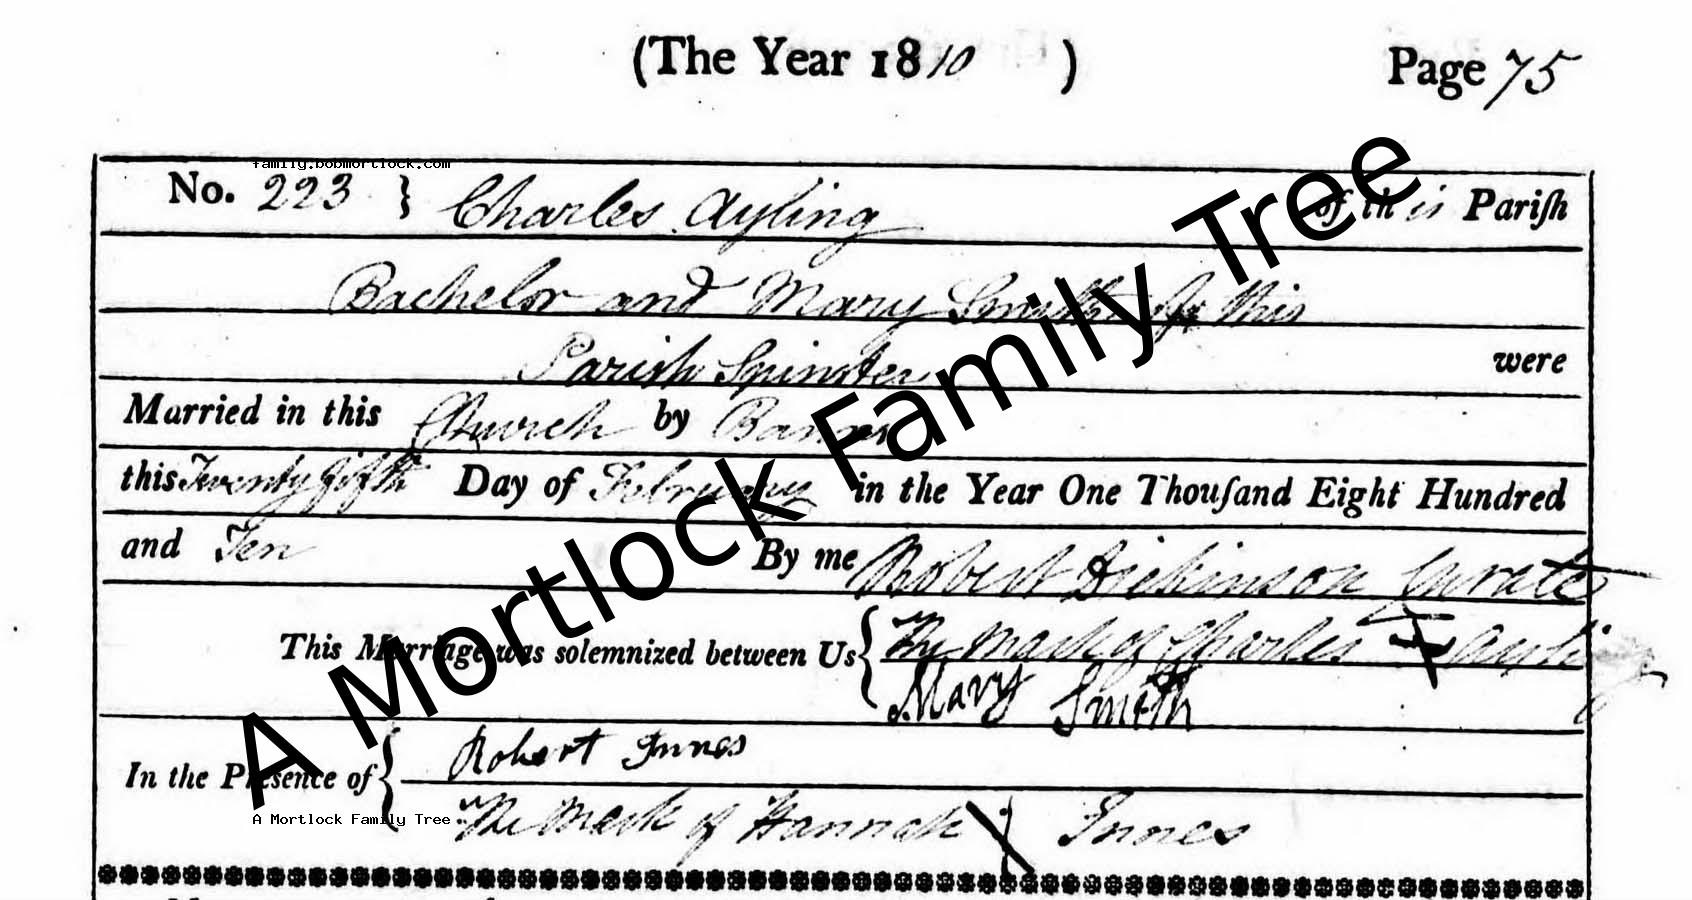 (The Year 1810 ) Page 75
family.bobmortlock.com
No. 223 } Charles Ayling of this Pariſh
Bachelor and Mary Smith of this
Parish Spinster were
Married in this Church by Banns
this Twenty fifth Day of February in the Year One Thouſand Eight Hundred
and Ten By me Robert Dickinson Curate
This Marriage was solemnized between Us { The Mark of Charles X Ayling
Mary Smith
In the Presence of { Robert Innes
The Mark of Hannah X Innes
A Mortlock Family Tree
A Mortlock Family Tree